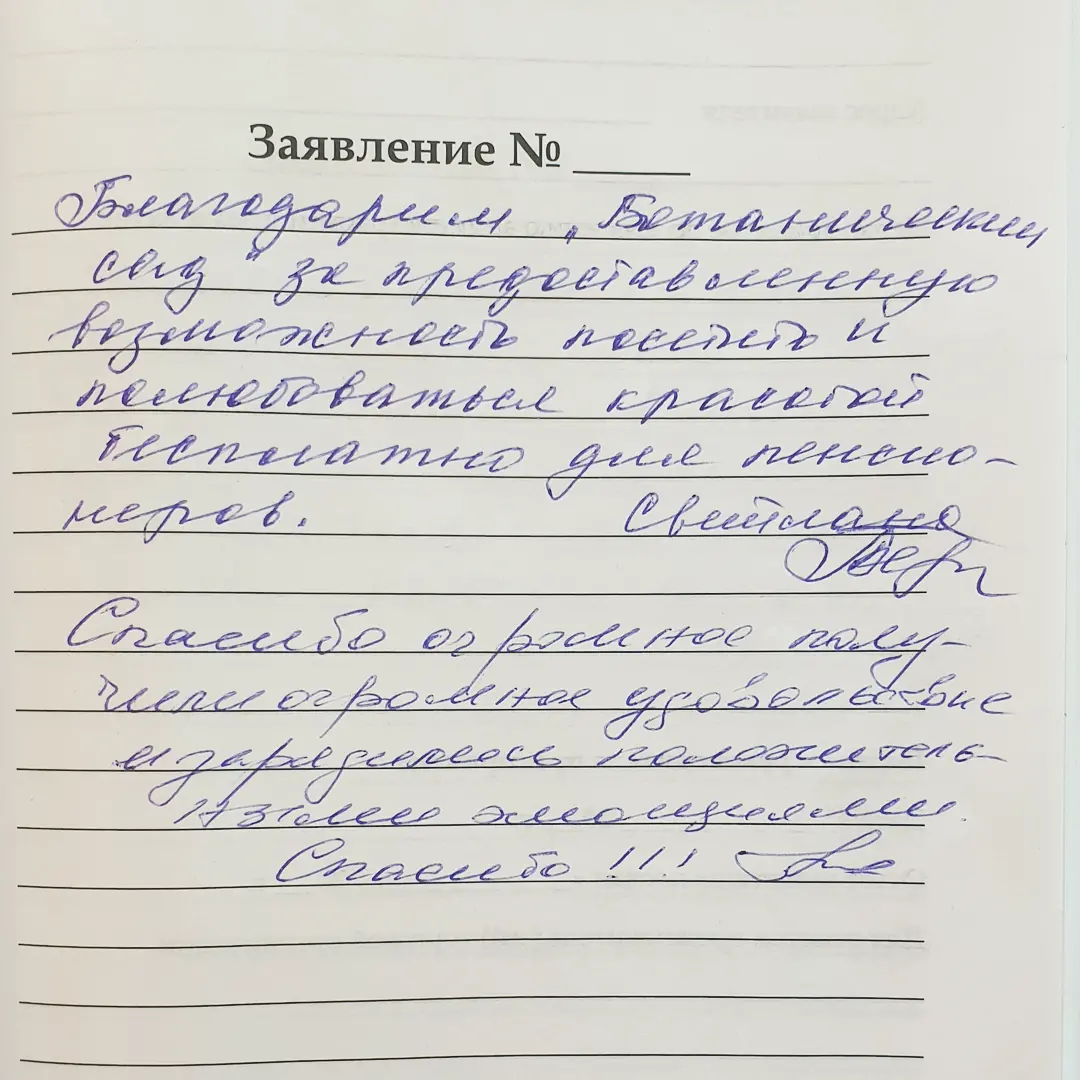 Заявление № ____
Благодарим „Ботанический
сад" за предоставленную
возможность посетить и
полюбоваться красотой
бесплатно для пенсио-
неров. Светлана
Спасибо огромное полу-
чили огромное удовольствие
и зарядились положитель-
ными эмоциями.
Спасибо !!!